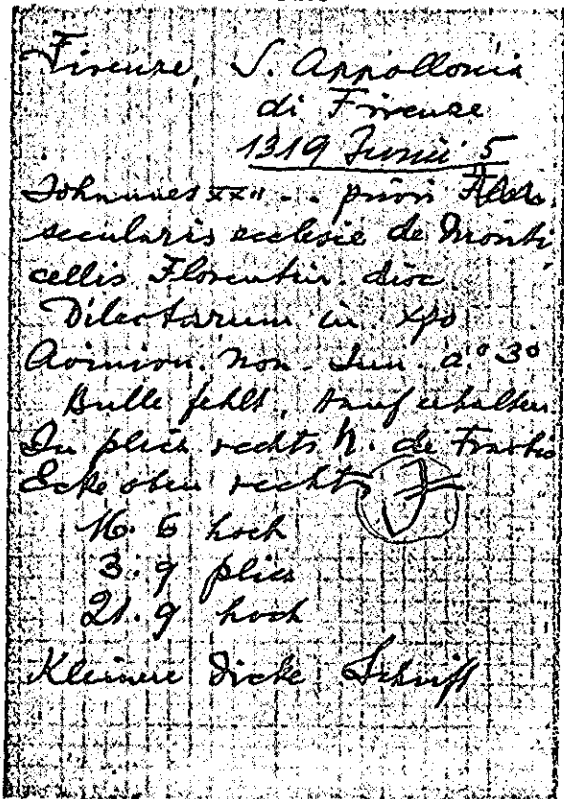 Firenze, S. Appollonia
di Firenze
1319 Junii 5
Johannes XXII -- priori
secularis ecclesie de Monti
cellis Florentin. dioc
Dilectarum in xpo
Avinion. Non. Jun. a° 3°
Bulle fehlt, Hanf erhalten
In plica rechts N. de Fractis
Ecke oben rechts
16. 6 hoch
3. 9 plica
21. 9. hoch
Kleinere dicke Schrift